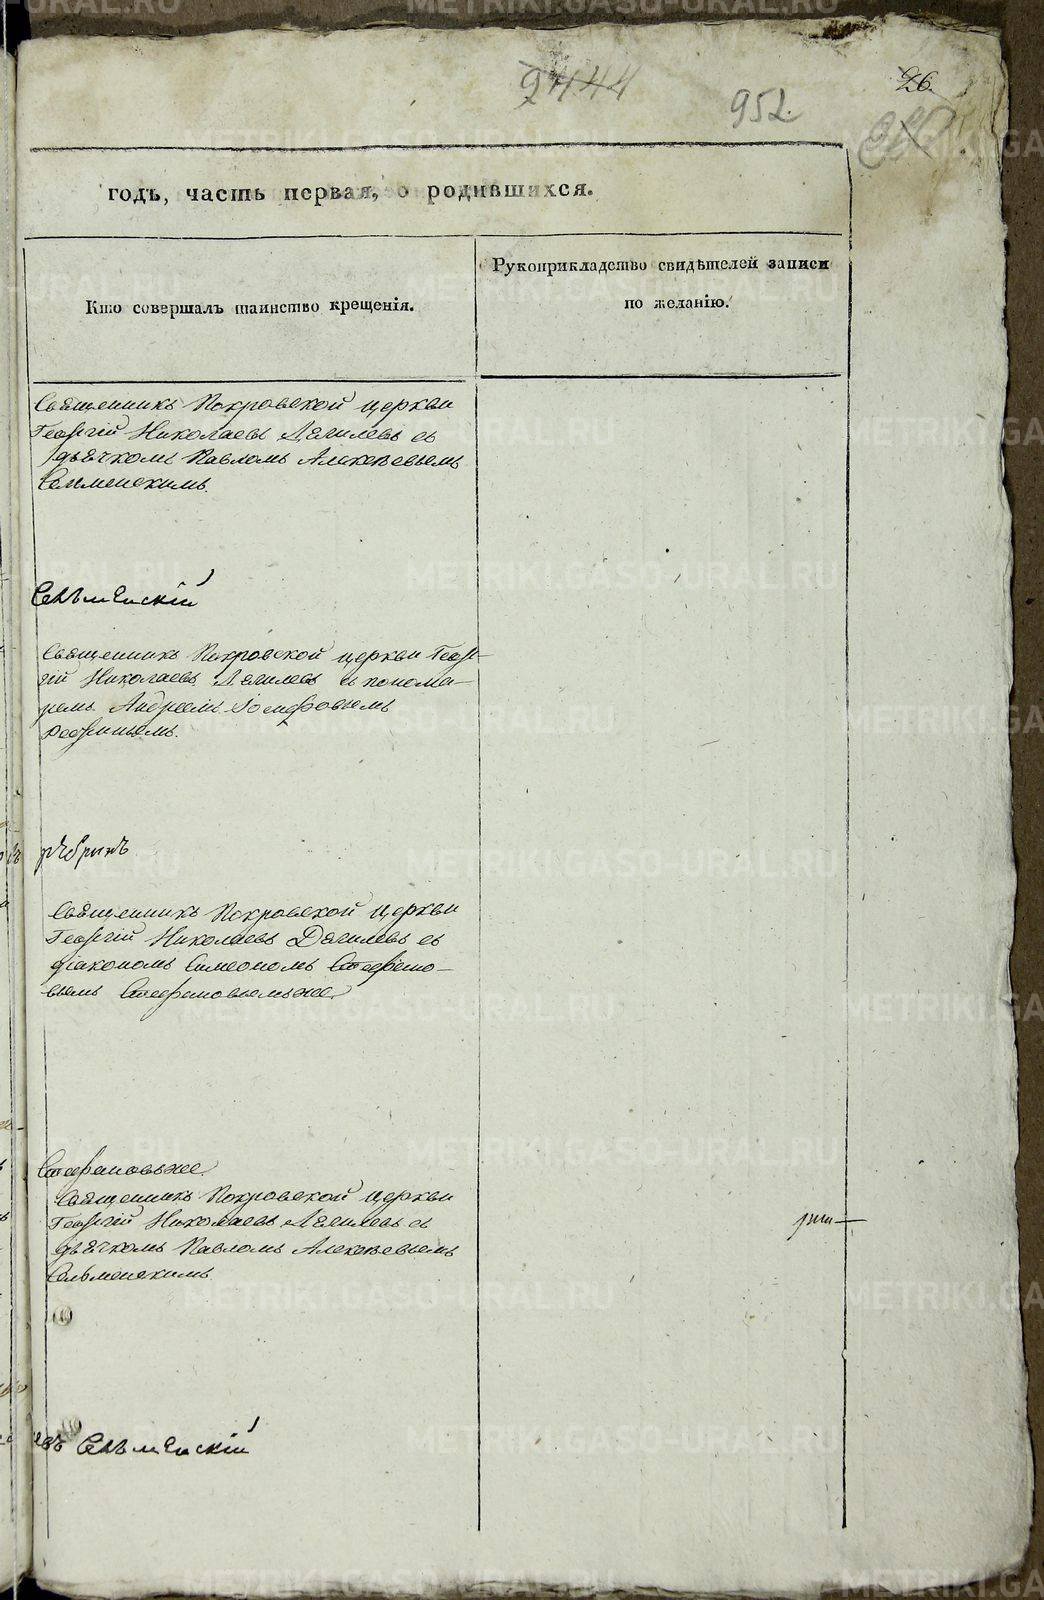 2444
952
26.
годъ, часть первая, о родившихся.
Кто совершалъ таинство крещенія.
Рукоприкладство свидѣтелей записи
по желанію.
Священникъ Покровской церкви
Георгій Николаевъ Дягилевъ съ
дьячкомъ Павломъ Алексѣевымъ
Сельменскимъ.
Сельменскій
Священникъ Покровской церкви Геор-
гій Николаевъ Дягилевъ съ понома-
ремъ Андреемъ Іосифовымъ
Священникъ Покровской церкви
Георгій Николаевъ Дягилевъ съ
діакономъ Симеономъ Стефано-
вымъ Стефановымъ же
Стефановъ же
Священникъ Покровской церкви
Георгій Николаевъ Дягилевъ съ
дьячкомъ Павломъ Алексѣевымъ
Сельменскимъ
Сельменскій
METRIKI.GASO-URAL.RU